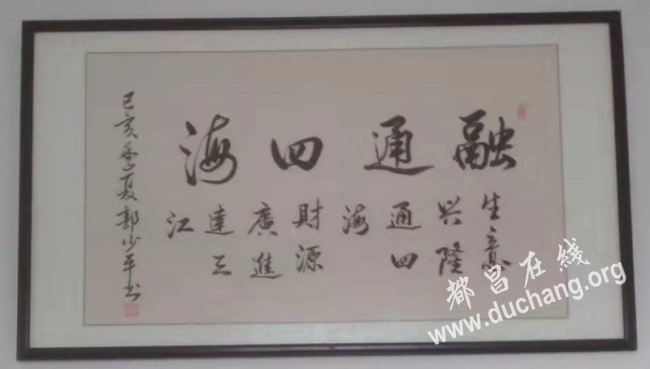 融通四海
生意
兴隆
通四
海
財源
廣進
達三
江
己亥季夏郭少平书
都昌在线
www.duchang.org